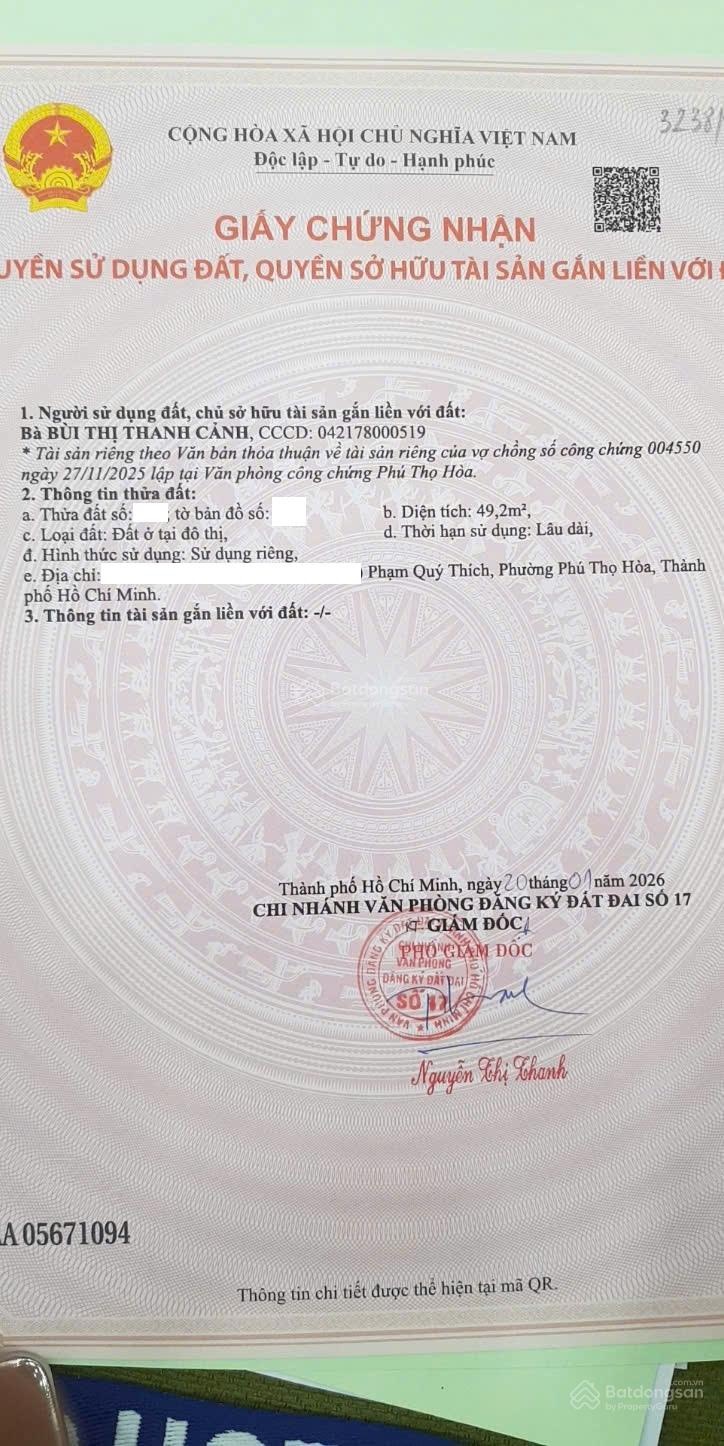 3238/
CỘNG HÒA XÃ HỘI CHỦ NGHĨA VIỆT NAM
Độc lập - Tự do - Hạnh phúc
GIẤY CHỨNG NHẬN
UYỀN SỬ DỤNG ĐẤT, QUYỀN SỞ HỮU TÀI SẢN GẮN LIỀN VỚI Đ
1. Người sử dụng đất, chủ sở hữu tài sản gắn liền với đất:
Bà BÙI THỊ THANH CẢNH, CCCD: 042178000519
* Tài sản riêng theo Văn bản thỏa thuận về tài sản riêng của vợ chồng số công chứng 004550
ngày 27/11/2025 lập tại Văn phòng công chứng Phú Thọ Hòa.
2. Thông tin thửa đất:
a. Thửa đất số: ; tờ bản đồ số: b. Diện tích: 49,2m²,
c. Loại đất: Đất ở tại đô thị, d. Thời hạn sử dụng: Lâu dài,
đ. Hình thức sử dụng: Sử dụng riêng,
e. Địa chỉ: Phạm Quý Thích, Phường Phú Thọ Hòa, Thành
phố Hồ Chí Minh.
3. Thông tin tài sản gắn liền với đất: -/-
Batdongsan
by PropertyGuru
Thành phố Hồ Chí Minh, ngày 20 tháng 01 năm 2026
CHI NHÁNH VĂN PHÒNG ĐĂNG KÝ ĐẤT ĐAI SỐ 17
KT. GIÁM ĐỐC
PHÓ GIÁM ĐỐC
CHI NHÁNH
VĂN PHÒNG
ĐĂNG KÝ ĐẤT ĐAI
SỐ 17
Nguyễn Thị Thanh
AA 05671094
Thông tin chi tiết được thể hiện tại mã QR.
Batdongsan
.com.vn
by PropertyGuru